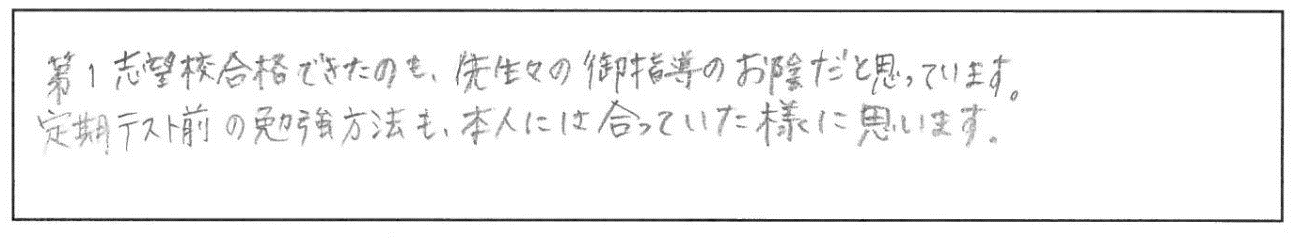 第1志望校合格できたのも、先生々の御指導のお陰だと思っています。
定期テスト前の勉強方法も、本人には合っていた様に思います。